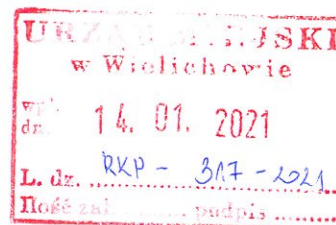 URZĄD MIEJSKI
w Wielichowie
wpł.
dn. 14. 01. 2021
L. dz. RKP - 317 - 2021
Ilość zał. ........ podpis ........